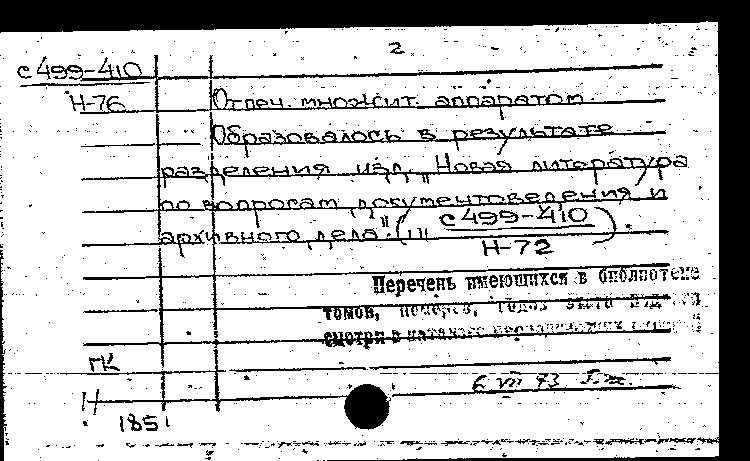 2
с499-410
Н-76
Отпеч. множит. аппаратом.
Образовалось в результате
разделения изд. „Новая литература
по вопросам документоведения и
архивного дела". (Ш с499-410
Н-72 ).
Перечень имеющихся в библиотеке
томов, номеров, годов
смотри в каталоге
ГК
Н
1851
6 VII 73